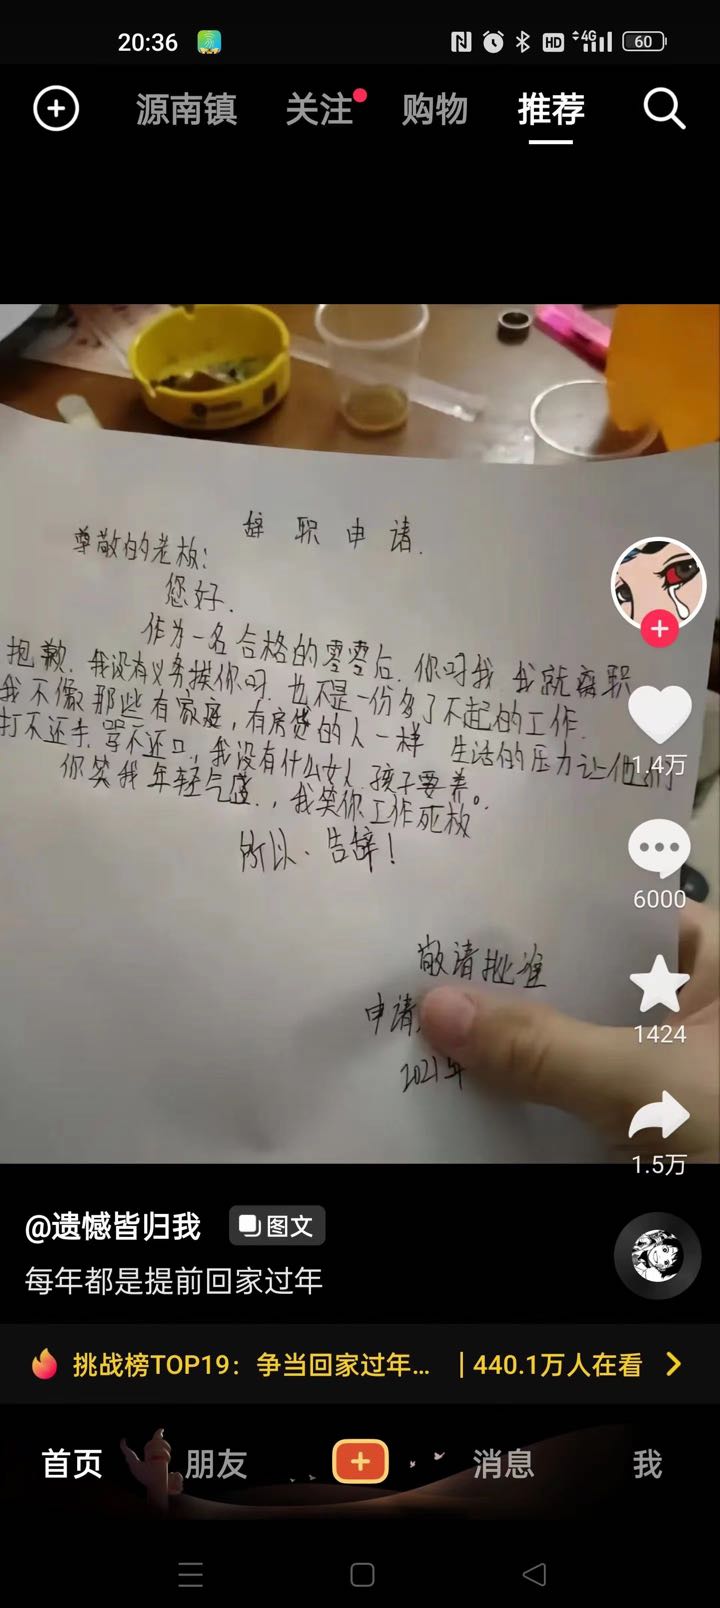 20:36
HD
4G
60
源南镇
关注
购物
推荐
辞职申请.
尊敬的老板:
您好.
作为一名合格的零零后.你叼我 我就离职
抱歉.我没有义务挨你叼.也不是一份多了不起的工作.
我不像那些有家庭,有房贷的人一样 生活的压力让他们
打不还手.骂不还口,我没有什么女人.孩子要养。
你笑我年轻气盛.,我笑你工作死板
所以、告辞!
敬请批准
申请
2021年
1.4万
6000
1424
1.5万
@遗憾皆归我
图文
每年都是提前回家过年
挑战榜TOP19：争当回家过年... | 440.1万人在看
首页
朋友
消息
我